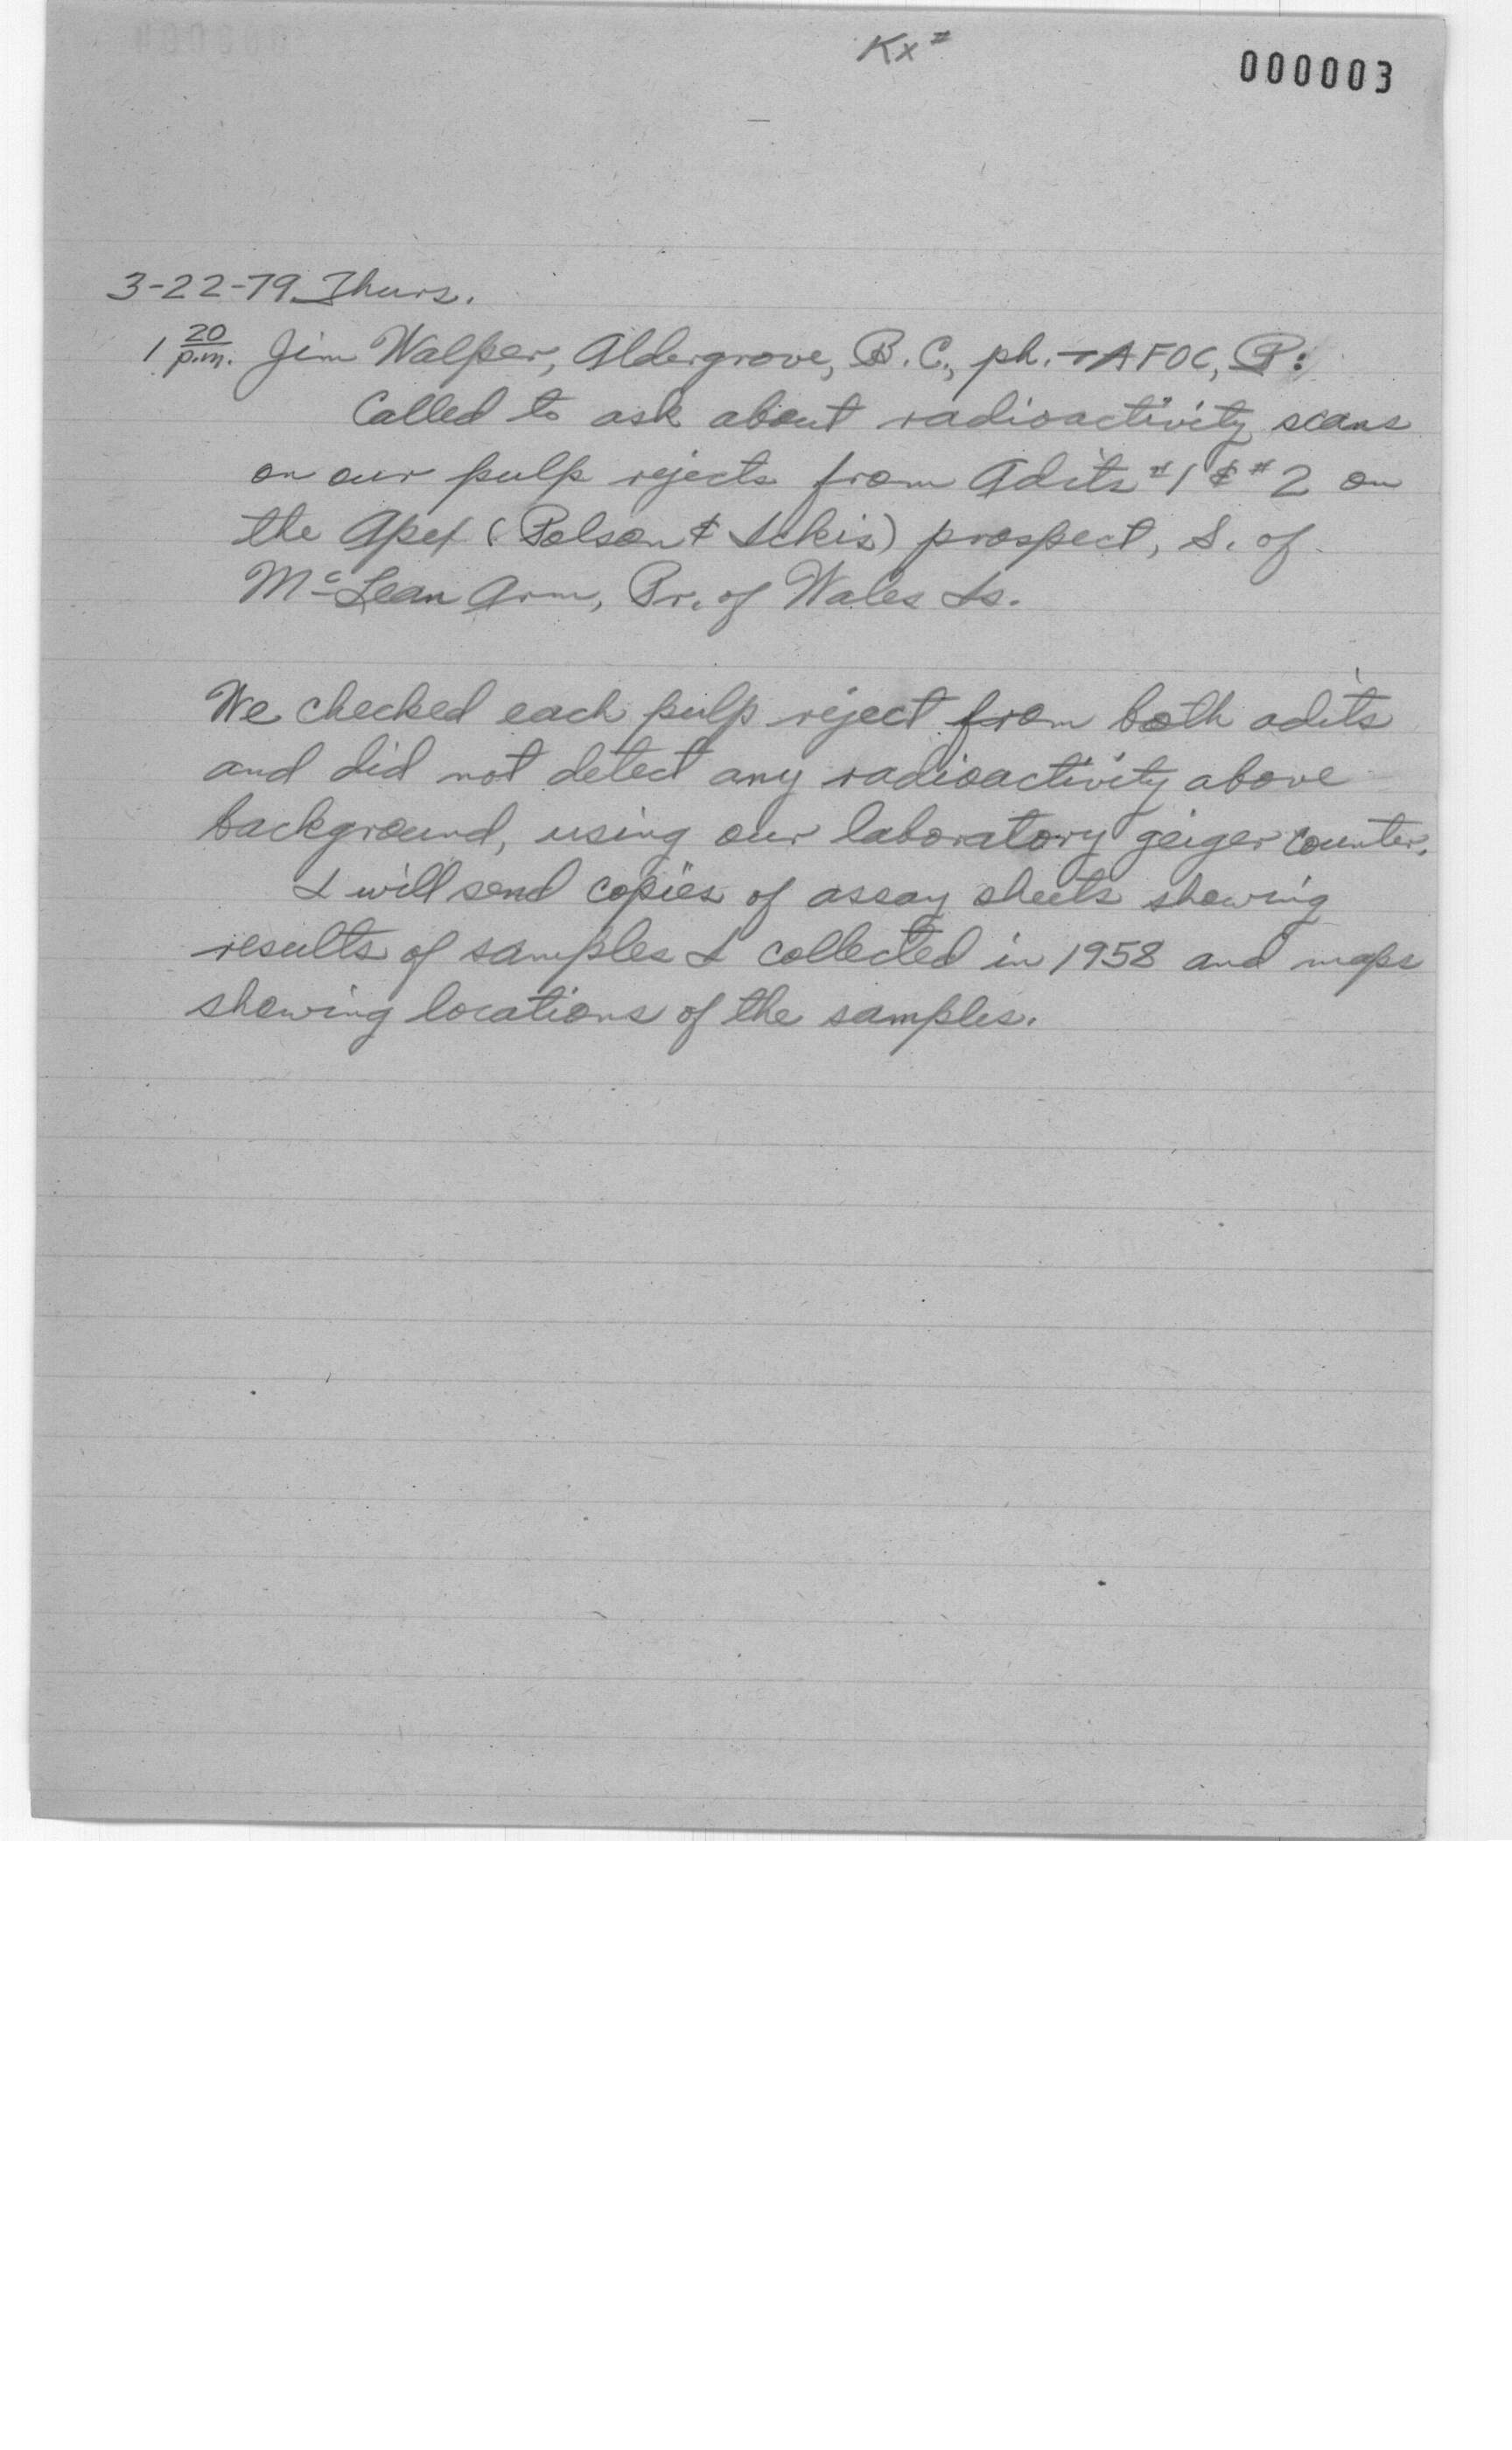 Kx=
000003
3-22-79 Thurs.
1 20 p.m. Jim Walper, Aldergrove, B.C., ph. → AFOC, P:
Called to ask about radioactivity scans
on our pulp rejects from Adits #1 & #2 on
the Apex (Polson & Ickis) prospect, S. of
McLean Arm, Pr. of Wales Is.
We checked each pulp reject from both adits
and did not detect any radioactivity above
background, using our laboratory geiger counter.
I will send copies of assay sheets showing
results of samples I collected in 1958 and maps
showing locations of the samples.